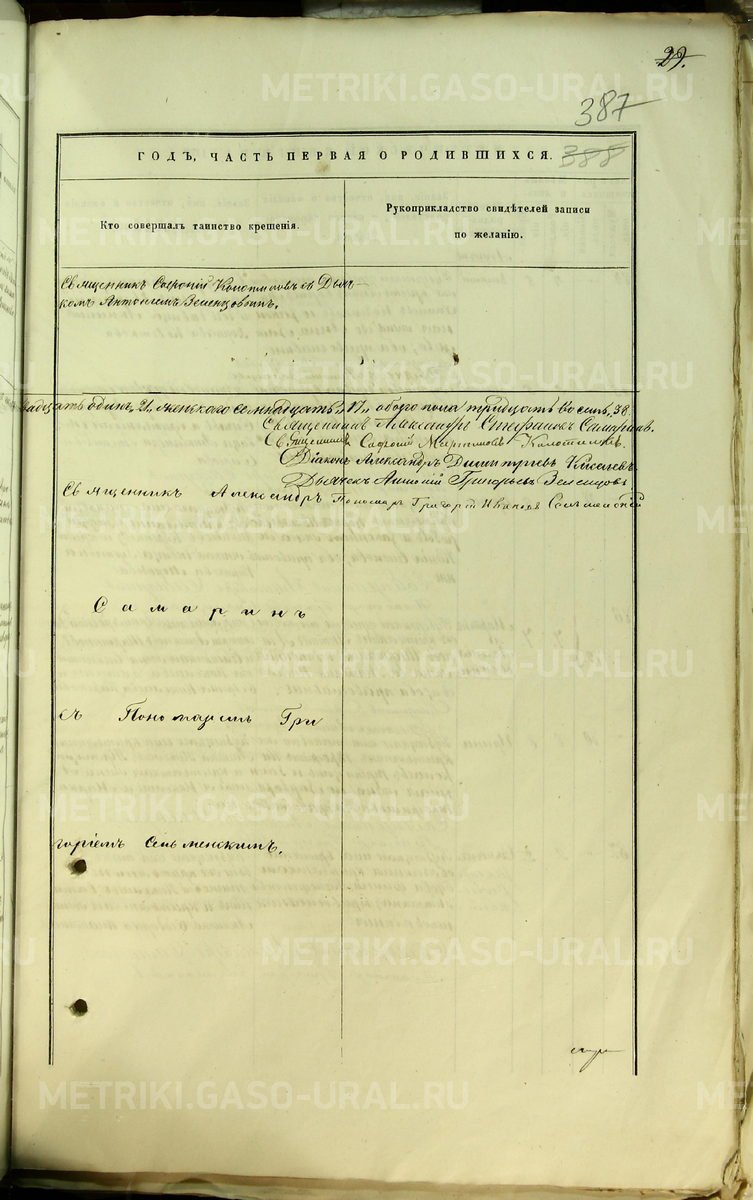 29.
387
388
ГОДЪ, ЧАСТЬ ПЕРВАЯ О РОДИВШИХСЯ.
Кто совершалъ таинство крещенія.
Рукоприкладство свидѣтелей записи
по желанію.
Священникъ Софроній съ Дьяч-
комъ Антоніемъ Зеленцовымъ.
одинъ, 21, женскаго семнадцать, 17, обоего пола тридцать восемь, 38.
Священникъ Александръ Стефановъ Самаринъ.
Священникъ Софроній
Діаконъ Александръ Димитріевъ
Дьячекъ Антоній Григорьевъ Зеленцовъ
Священникъ Александръ
Пономарь Григорій Ивановъ
Самаринъ
съ Пономаремъ Гри
горіемъ
METRIKI.GASO-URAL.RU